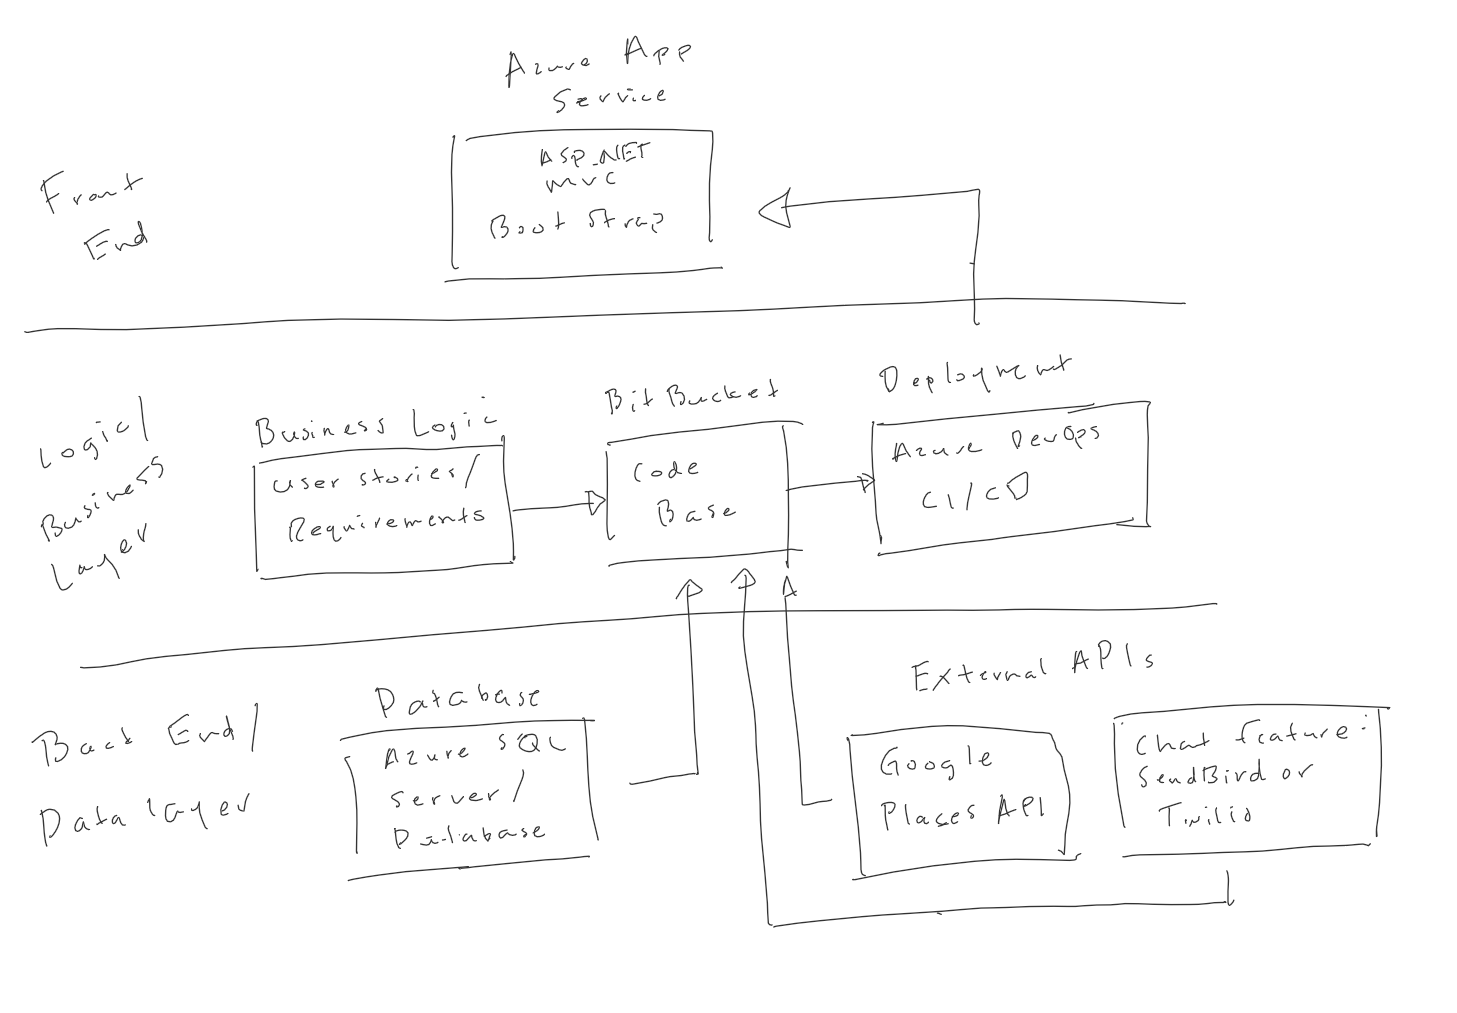 Azure App
Service
ASP.NET
MVC
Boot Strap
Front
End
Logic/
Business
Layer
Business Logic
User stories/
Requirements
BitBucket
Code
Base
Deployment
Azure DevOps
CI/CD
Back End/
Data layer
Database
Azure SQL
Server/
Database
External APIs
Google
Places API
Chat feature:
SendBird or
Twilio